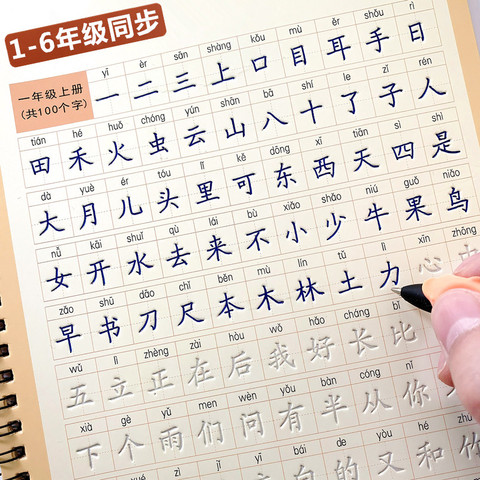 1-6年级同步
yī èr sān shàng kǒu mù ěr shǒu rì
一年级上册
(共100个字)
一 二 三 上 口 目 耳 手 日
tián hé huǒ chóng yún shān bā shí le zǐ rén
田 禾 火 虫 云 山 八 十 了 子 人
dà yuè ér tóu lǐ kě dōng xī tiān sì shì
大 月 儿 头 里 可 东 西 天 四 是
nǚ kāi shuǐ qù lái bù xiǎo shǎo niú guǒ niǎo
女 开 水 去 来 不 小 少 牛 果 鸟
zǎo shū dāo chǐ běn mù lín tǔ lì xīn zhōng
早 书 刀 尺 本 木 林 土 力 心
wǔ lì zhèng zài hòu wǒ hǎo cháng bǐ
五 立 正 在 后 我 好 长 比
xià gè yǔ men wèn yǒu bàn cóng nǐ
下 个 雨 们 问 有 半 从 你
zì bái de yòu hé
白 的 又 和